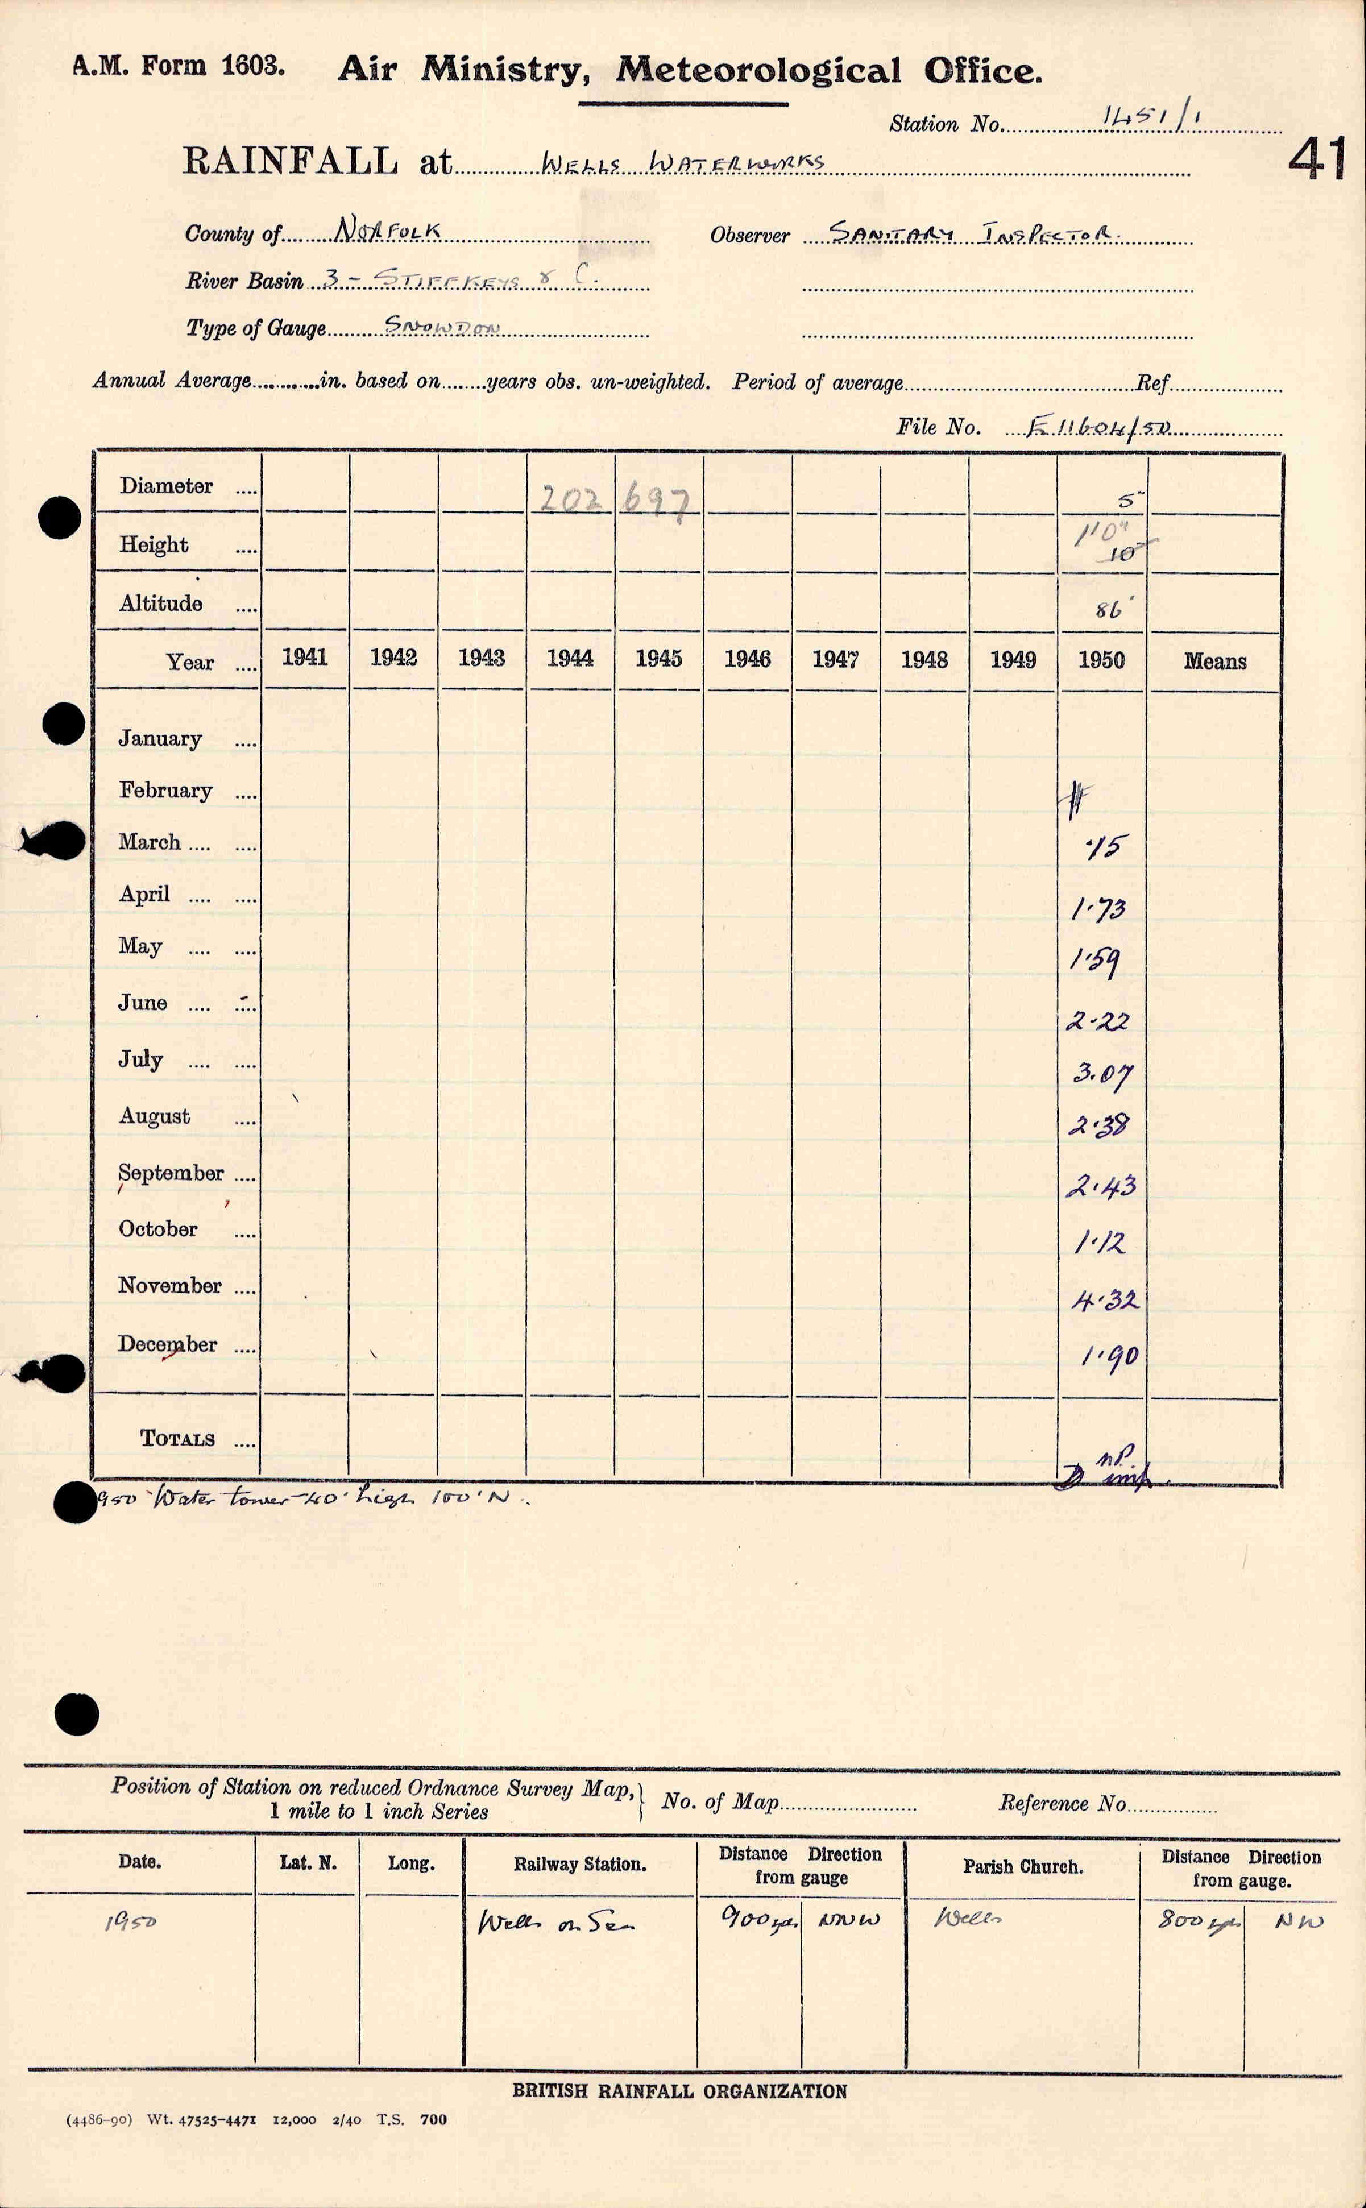 A.M. Form 1603. Air Ministry, Meteorological Office.
Station No. 1451/1
41
RAINFALL at WELLS WATERWORKS
County of NORFOLK Observer SANITARY INSPECTOR.
River Basin 3 - STIFFKEYS & C.
Type of Gauge SNOWDON
Annual Average in. based on years obs. un-weighted. Period of average Ref.
File No. E 11604/50
Diameter 202 697 5"
Height 1'0" 10"
Altitude 86'
Year 1941 1942 1943 1944 1945 1946 1947 1948 1949 1950 Means
January
February
March ·75
April 1·73
May 1·59
June 2·22
July 3·07
August 2·38
September 2·43
October 1·12
November 4·32
December 1·90
TOTALS
950 Water tower 40' high 100' N.
Position of Station on reduced Ordnance Survey Map, 1 mile to 1 inch Series No. of Map Reference No.
Date. Lat. N. Long. Railway Station. Distance Direction from gauge Parish Church. Distance Direction from gauge.
1950 Wells on Sea 900 yds NNW Wells 800 yds NW
BRITISH RAINFALL ORGANIZATION
(4486-90) Wt. 47525-4471 12,000 2/40 T.S. 700